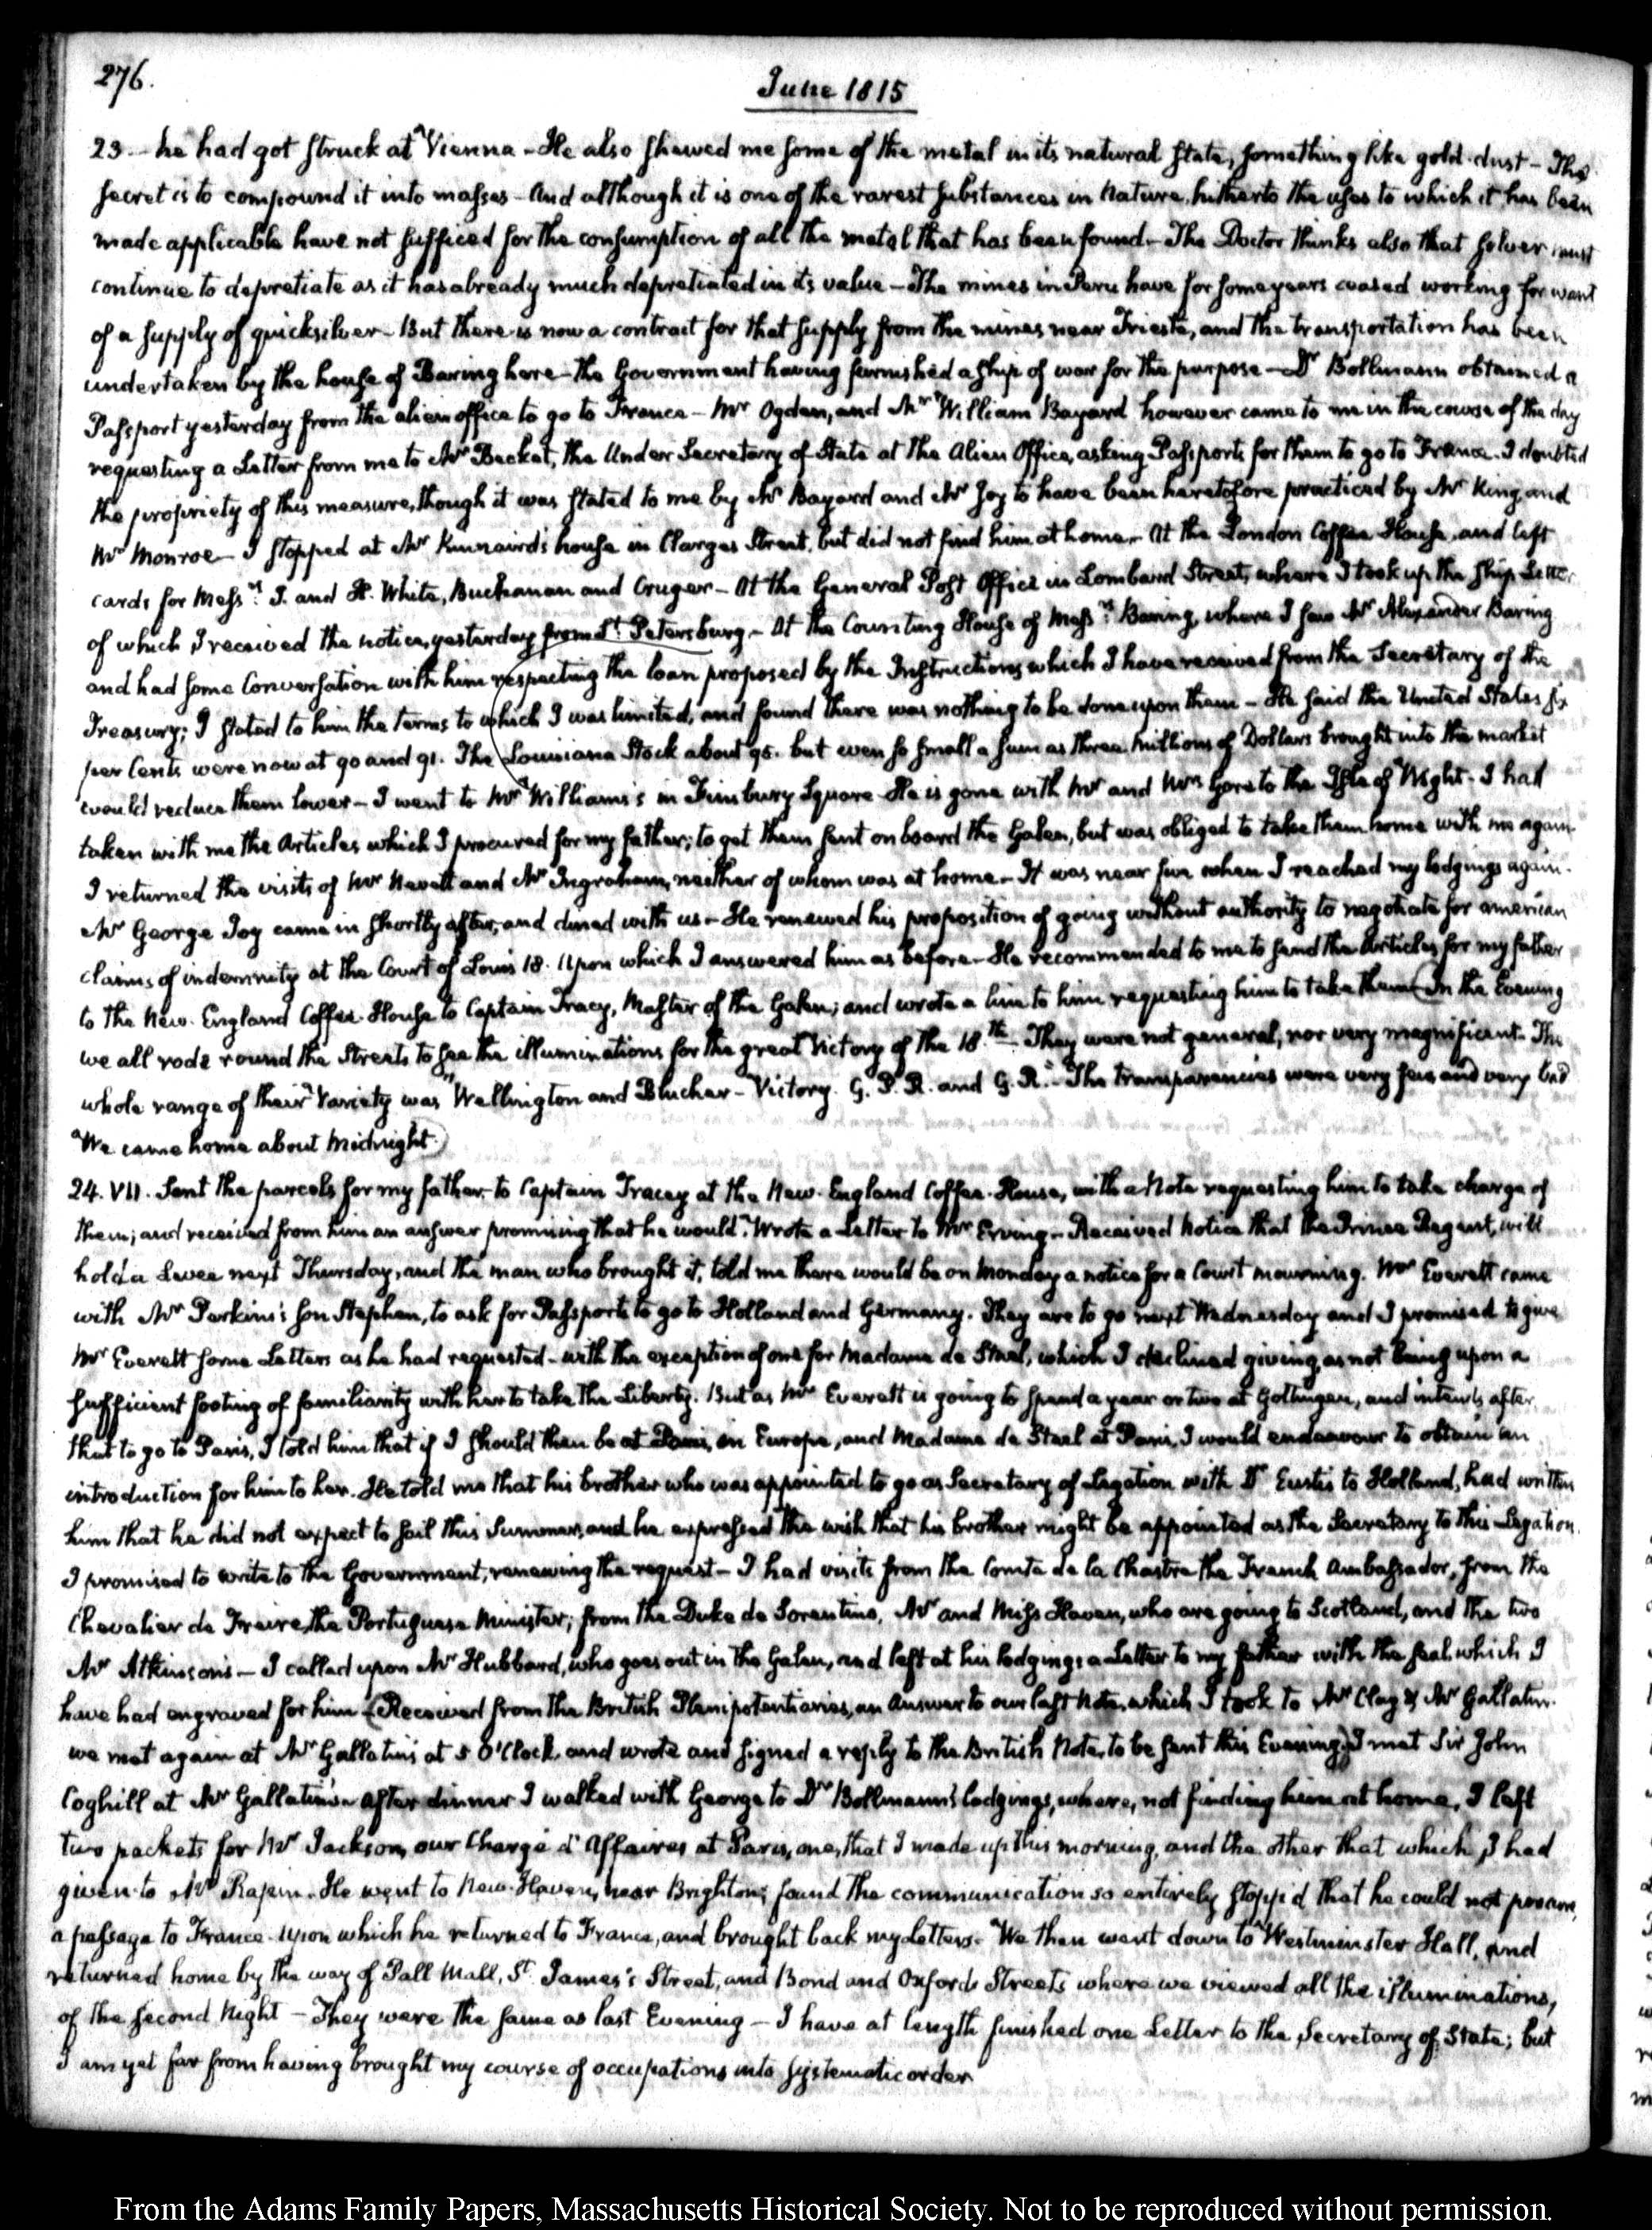 276.
June 1815
23 - he had got struck at Vienna - He also shewed me some of the metal in its natural state, something like gold-dust - The
secret is to compound it into masses - And although it is one of the rarest substances in Nature, hitherto the uses to which it has been
made applicable have not sufficed for the consumption of all the metal that has been found - The Doctor thinks also that silver must
continue to depretiate as it has already much depretiated in its value - The mines in Peru have for some years ceased working for want
of a supply of quicksilver - But there is now a contract for that supply from the mines near Trieste, and the transportation has been
undertaken by the house of Baring here - the Government having furnished a ship of war for the purpose - Dr Bollmann obtained a
Passport yesterday from the alien office to go to France - Mr Ogden, and Mr William Bayard however came to me in the course of the day
requesting a Letter from me to Mr Becket, the Under Secretary of State at the Alien Office, asking Passports for them to go to France. I doubted
the propriety of this measure, though it was stated to me by Mr Bayard and Mr Joy to have been heretofore practiced by Mr King and
Mr Monroe - I stopped at Mr Kinnaird's house in Clarges Street, but did not find him at home - At the London Coffee House, and left
cards for Messrs J. and H. White, Buchanan and Cruger - At the General Post Office in Lombard Street, where I took up the ship Letter
of which I received the notice, yesterday from St. Petersburg. - At the Counting House of Messrs Baring, where I saw Mr Alexander Baring
and had some Conversation with him respecting the loan proposed by the Instructions which I have received from the Secretary of the
Treasury; I stated to him the terms to which I was limited, and found there was nothing to be done upon them - He said the United States six
per Cents were now at 90 and 91. The Louisiana Stock about 95. but even so small a sum as three Millions of Dollars brought into the market
would reduce them lower - I went to Mr Williams's in Finsbury Square - He is gone with Mr and Mrs Gore to the Isle of Wight - I had
taken with me the Articles which I procured for my father; to get them sent on board the Galen, but was obliged to take them home with me again.
I returned the visits of Mr Nevett and Mr Ingraham, neither of whom was at home - It was near five when I reached my lodgings again.
Mr George Joy came in shortly after, and dined with us - He renewed his proposition of going without authority to negotiate for american
claims of indemnity at the Court of Louis 18. Upon which I answered him as before - He recommended to me to send the Articles for my father
to the New-England Coffee-House to Captain Tracy, Master of the Galen; and wrote a line to him requesting him to take them (In the Evening
we all rode round the Streets to see the illuminations for the great Victory of the 18.th - They were not general, nor very magnificent - The
whole range of their Variety was "Wellington and Blucher - Victory. G. P. R. and G. R." - The transparencies were very few and very bad
We came home about Midnight.)
24. VII. Sent the parcels for my father to Captain Tracey at the New-England Coffee-House, with a Note requesting him to take charge of
them; and received from him an answer promising that he would. Wrote a Letter to Mr Erving - Received Notice that the Prince Regent, will
hold a Levee next Thursday, and the man who brought it, told me there would be on Monday a notice for a Court mourning. Mr Everett came
with Mr Perkins's son Stephen, to ask for Passports to go to Holland and Germany. They are to go next Wednesday and I promised to give
Mr Everett some Letters as he had requested - with the exception of one for Madame de Stael, which I declined giving, as not being upon a
sufficient footing of familiarity with her to take the Liberty. But as Mr Everett is going to spend a year or two at Gottingen, and intends after
that to go to Paris, I told him that if I should then be at Paris, in Europe, and Madame de Stael at Paris, I would endeavour to obtain an
introduction for him to her. He told me that his brother who was appointed to go as Secretary of Legation with Dr Eustis to Holland, had written
him that he did not expect to sail this Summer, and he expressed the wish that his brother might be appointed as the Secretary to this Legation.
I promised to write to the Government, renewing the request - I had visits from the Comte de la Chastre the French Ambassador, from the
Chevalier de Freire, the Portuguese Minister; from the Duke de Sorentino, Mr and Miss Haven, who are going to Scotland, and the two
Mr Atkinsons - I called upon Mr Hubbard, who goes out in the Galen, and left at his lodgings a Letter to my father with the seal which I
have had engraved for him (Received from the British Plenipotentiaries, an Answer to our last Note, which I took to Mr Clay & Mr Gallatin.
we met again at Mr Gallatin's at 5 O'Clock, and wrote and signed a reply to the British Note, to be sent this Evening) I met Sir John
Coghill at Mr Gallatin's - After dinner I walked with George to Dr Bollmann's lodgings, where, not finding him at home, I left
two packets for Mr Jackson, our Chargé d'Affaires at Paris, one, that I made up this morning, and the other that which I had
given to Mr He went to New-Haven, near Brighton; found the communication so entirely stopp'd that he could not procure,
a passage to France. Upon which he returned to France, and brought back my Letters. We then went down to Westminster Hall, and
returned home by the way of Pall Mall, St James's Street, and Bond and Oxford Streets where we viewed all the illuminations,
of the second Night - They were the same as last Evening - I have at length finished one Letter to the Secretary of State; but
I am yet far from having brought my course of occupations into systematic order
From the Adams Family Papers, Massachusetts Historical Society. Not to be reproduced without permission.